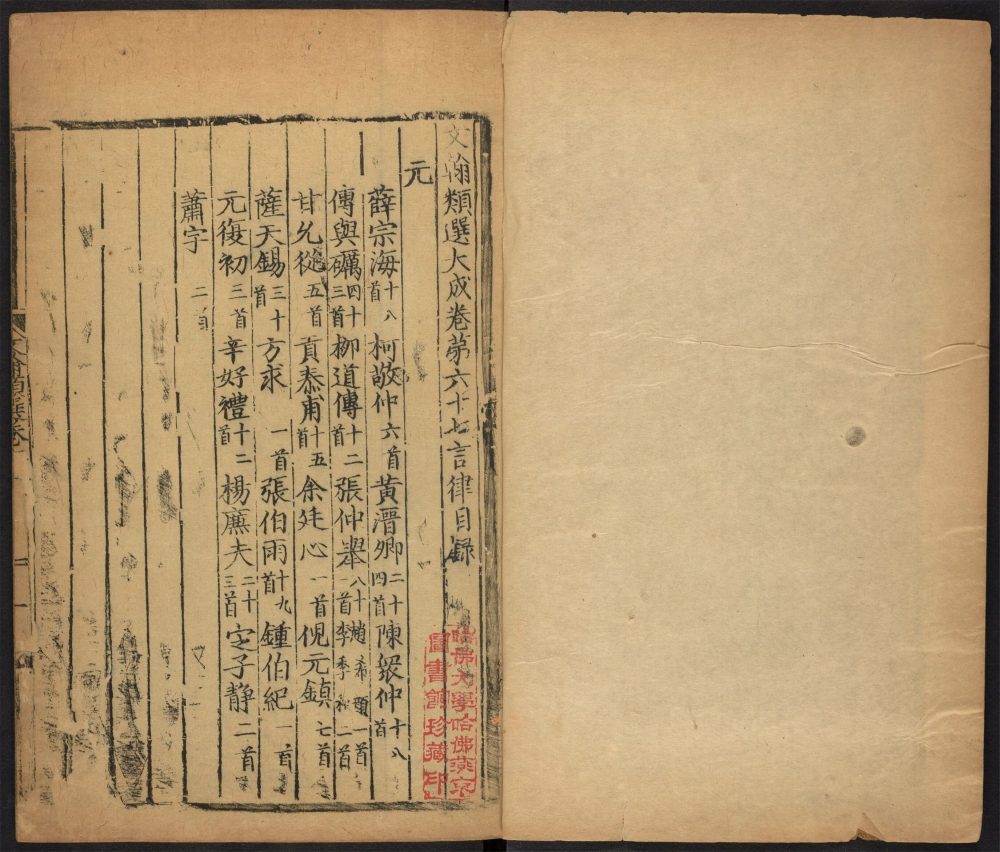 文翰類選大成卷第六十七言律目録
元
薛宗海十八首 柯敬仲六首 黄溍卿二十四首 陳衆仲十八首
傳與礪四十三首 柳道傳十二首 張仲舉八十一首 趙希顗一首 李季和二首
甘允從五首 貢泰甫十五首 余廷心一首 倪元鎮七首
薩天錫三十首 方求一首 張伯雨十九首 鍾伯紀一首
元復初三首 辛好禮十二首 楊廉夫二十三首 定子静二首
蕭字二首
哈佛大學哈佛燕京
圖書館珍藏印